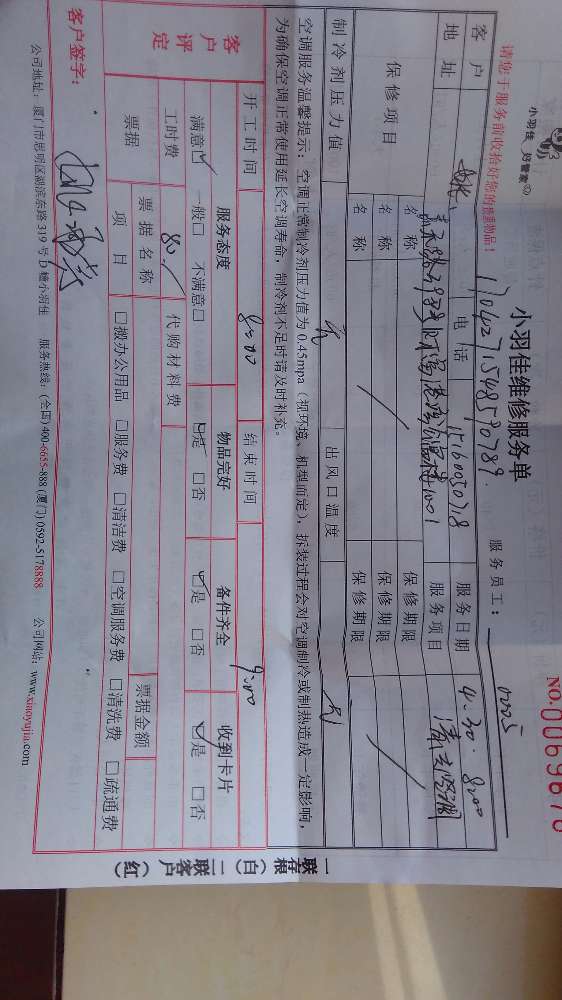 小羽佳 好管家
小羽佳维修服务单
NO.0069676
请您于服务前收拾好您的贵重物品！
1704271548590789.
服务员工：
客户
电话
15160050718
服务日期
4.30. 8:00
地址
服务项目
清洗空调
保修项目
名称
保修期限
名称
保修期限
名称
保修期限
制冷剂压力值
出风口温度
空调服务温馨提示：空调正常制冷剂压力值为 0.45mpa（视环境、机型而定），拆装过程会对空调制冷或制热造成一定影响，
为确保空调正常使用延长空调寿命，制冷剂不足时请及时补充。
开工时间
8:00
结束时间
9:00
客户评定
服务态度
物品完好
备件齐全
收到卡片
满意☑ 一般□ 不满意□
☑是 □否
☑是 □否
☑是 □否
工时费
80.
代购材料费
票据
票据名称
票据金额
项目
□搬办公用品 □服务费 □清洁费 □空调服务费 □清洗费 □疏通费
客户签字：
公司地址：厦门市思明区湖滨东路 319 号 D 幢小羽佳 服务热线：(全国) 400-6655-888 (厦门) 0592-5178888 公司网站：www.xiaoyujia.com
一联存根（白）二联客户（红）